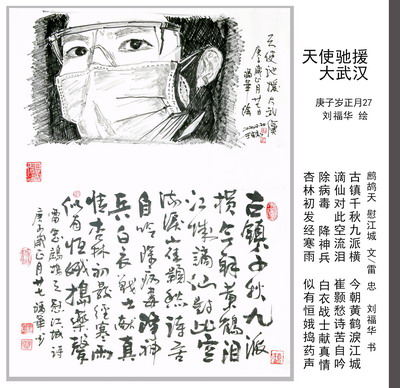 天使驰援大武汉
庚子岁正月廿七
福华绘
古镇千秋九派
横今朝黄鹤泪
江城谪仙对此空
流泪崔颢愁诗苦
自吟除病毒降神
兵白衣战士献真
情杏林初发经寒雨
似有恒娥捣药声
雷忠鹧鸪天慰江城诗
庚子岁正月廿七福华书
天使驰援
大武汉
庚子岁正月27
刘福华 绘
鹧鸪天 慰江城 文/雷 忠 刘福华 书
古镇千秋九派横 今朝黄鹤淚江城
谪仙对此空流泪 崔颢愁诗苦自吟
除病毒 降神兵 白衣战士献真情
杏林初发经寒雨 似有恒娥捣药声